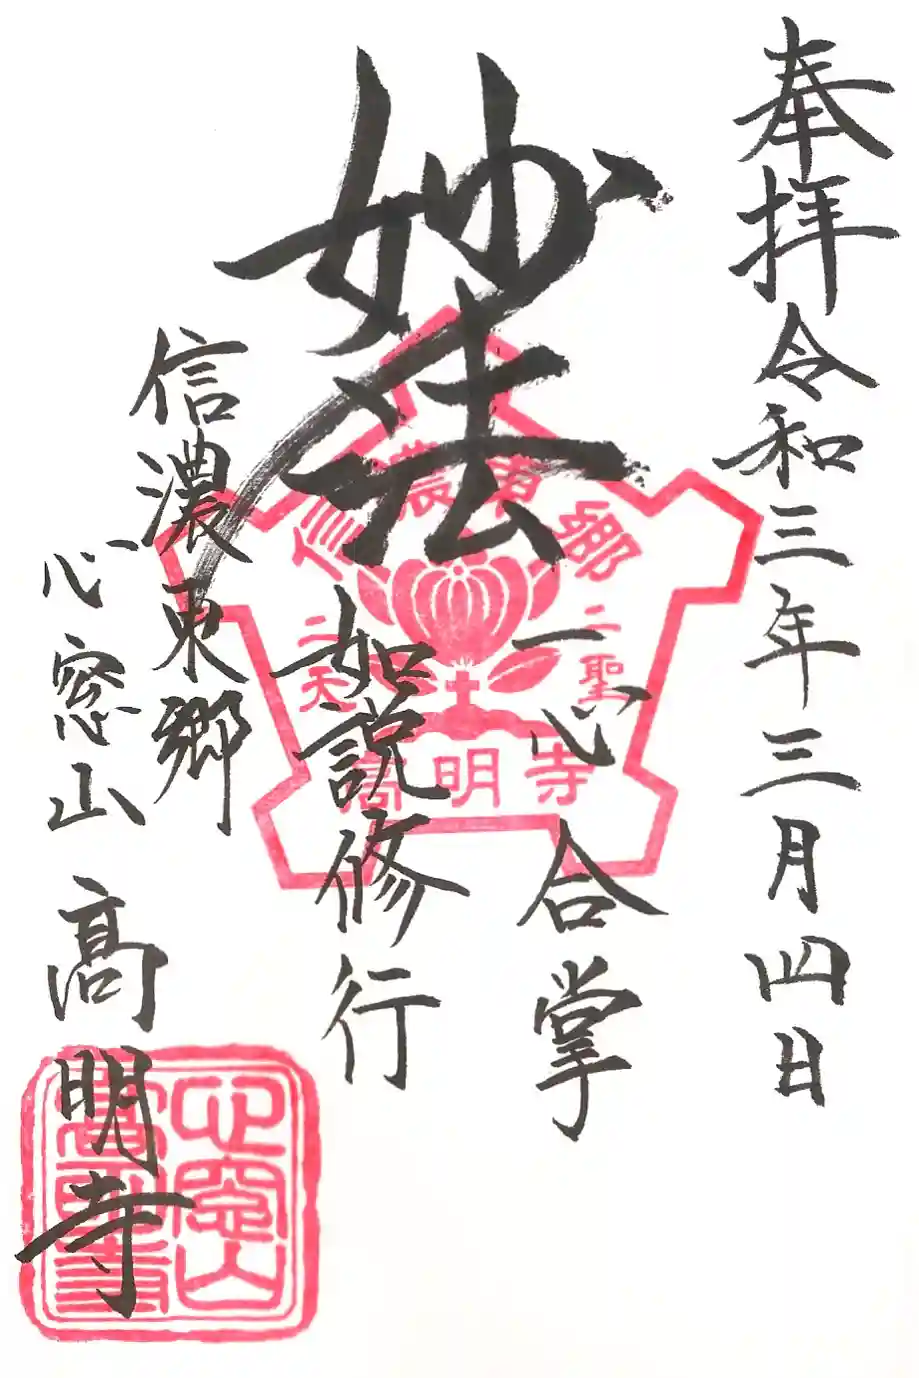 奉拝令和三年三月四日
妙法
一心合掌
如説修行
信濃東郷
心窓山髙明寺
信濃東郷
二聖
二天
髙明寺
心窓山
髙明寺